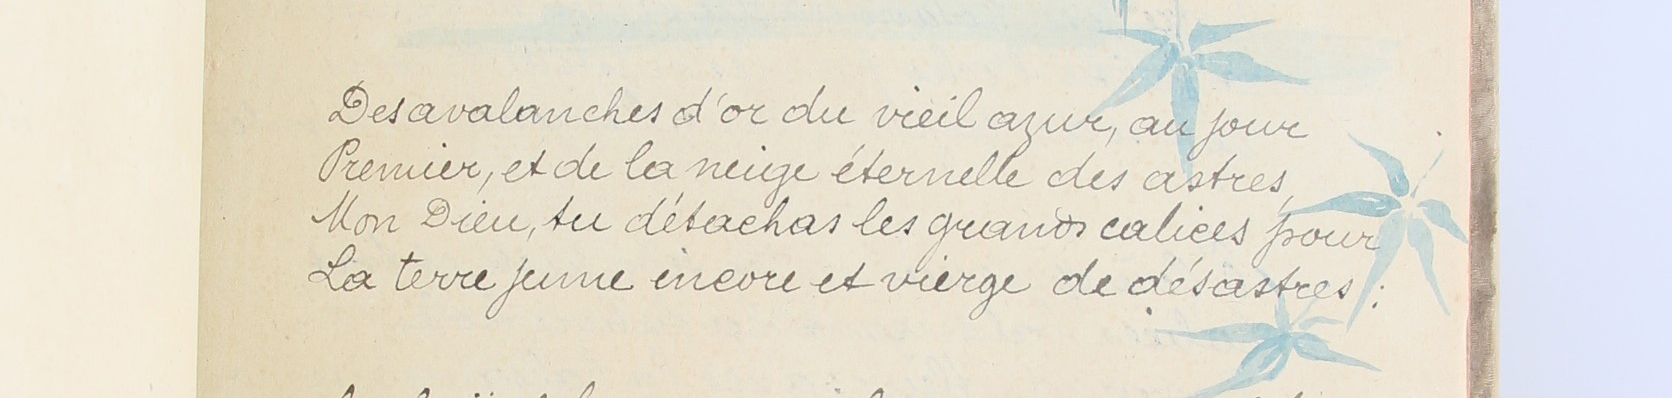 Des avalanches d'or du vieil azur, au jour
Premier, et de la neige éternelle des astres,
Mon Dieu, tu détachas les grands calices pour
La terre jeune encore et vierge de désastres ;